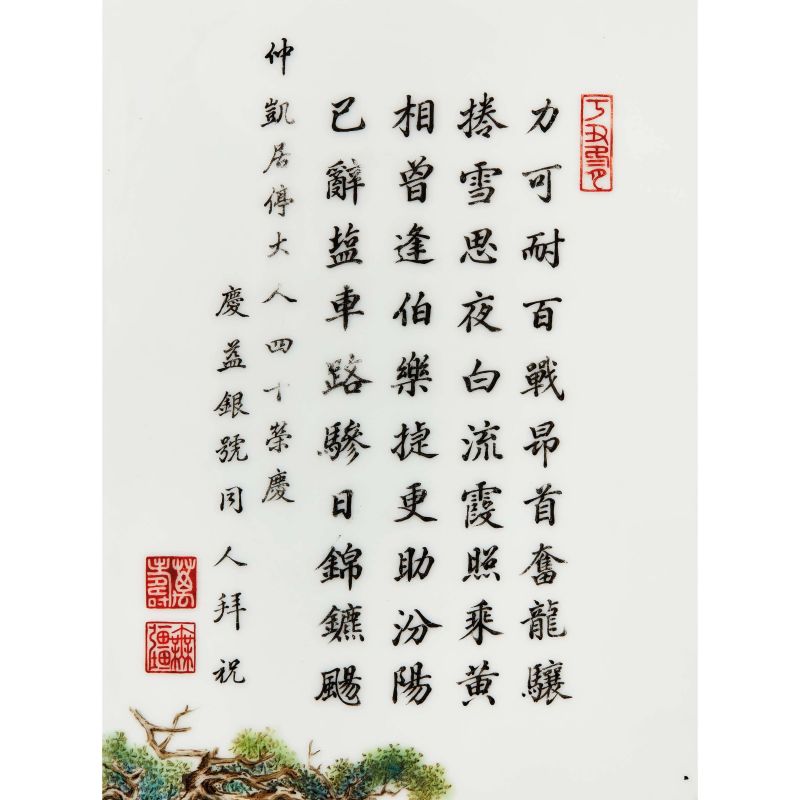 丁丑
力可耐百戰昂首奮龍驤
捲雪思夜白流霞照乘黃
相曾逢伯樂捷更助汾陽
已辭塩車路驂日錦鑣颺
仲凱居停大人四十榮慶
慶益銀號同人拜祝
萬壽
無疆